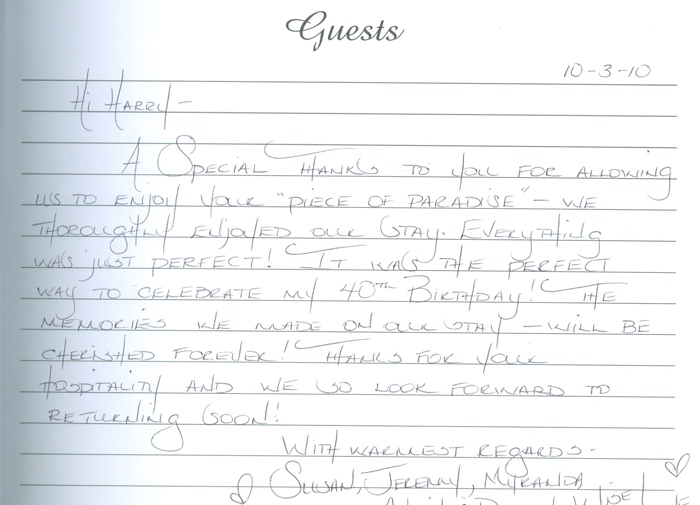 Guests
10-3-10
Hi Harry -
A Special thanks to you for allowing
us to enjoy your "piece of paradise" - we
thoroughly enjoyed our stay. Everything
was just perfect! It was the perfect
way to celebrate my 40th Birthday! The
memories we made on our stay - will be
cherished forever! Thanks for your
hospitality and we so look forward to
returning soon!
With warmest regards -
Susan, Jeremy, Myranda